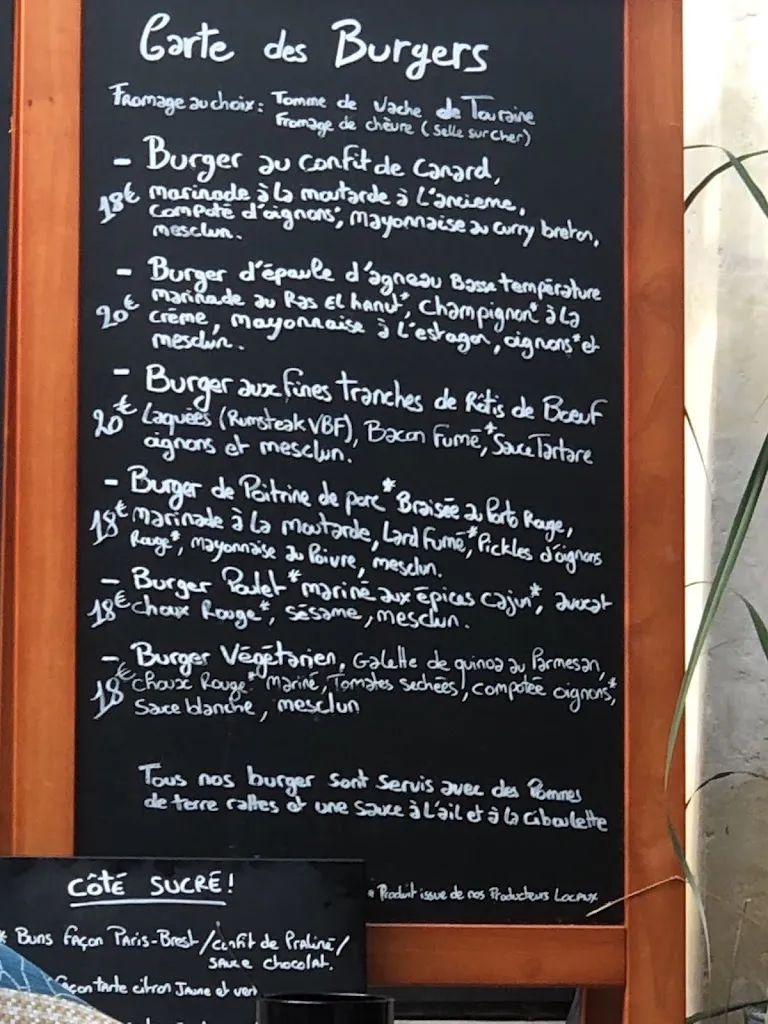 Carte des Burgers
Fromage au choix : Tomme de Vache de Touraine
Fromage de chèvre (Selle sur cher)
- Burger au confit de Canard,
18€ marinade à la moutarde à L'ancienne,
compoté d'oignons*, mayonnaise au curry breton,
mesclun.
- Burger d'épaule d'agneau Basse température
20€ marinade au Ras El hanut*, Champignon* à la
crème, mayonnaise à L'estragon, oignons* et
mesclun.
- Burger aux fines tranches de Rôtis de Bœuf
20€ Laquées (Rumsteak VBF), Bacon Fumé,* Sauce Tartare
oignons et mesclun.
- Burger de Poitrine de porc* Braisée au Porto Rouge,
18€ marinade à la moutarde, Lard Fumé,* Pickles d'oignons
Rouge*, mayonnaise au Poivre, mesclun.
- Burger Poulet* mariné aux épices cajun*, avocat
18€ choux Rouge*, sésame, mesclun.
- Burger Végétarien, Galette de quinoa au Parmesan,
18€ choux Rouge* mariné, Tomates sechées, compotée oignons*,
Sauce blanche, mesclun
Tous nos burger sont servis avec des Pommes
de terre rattes et une sauce à L'ail et à la Ciboulette
* Produit issue de nos Producteurs Locaux
CÔTÉ SUCRÉ!
* Buns façon Paris-Brest / confit de Praliné /
sauce chocolat.
façon tarte citron Jaune et vert